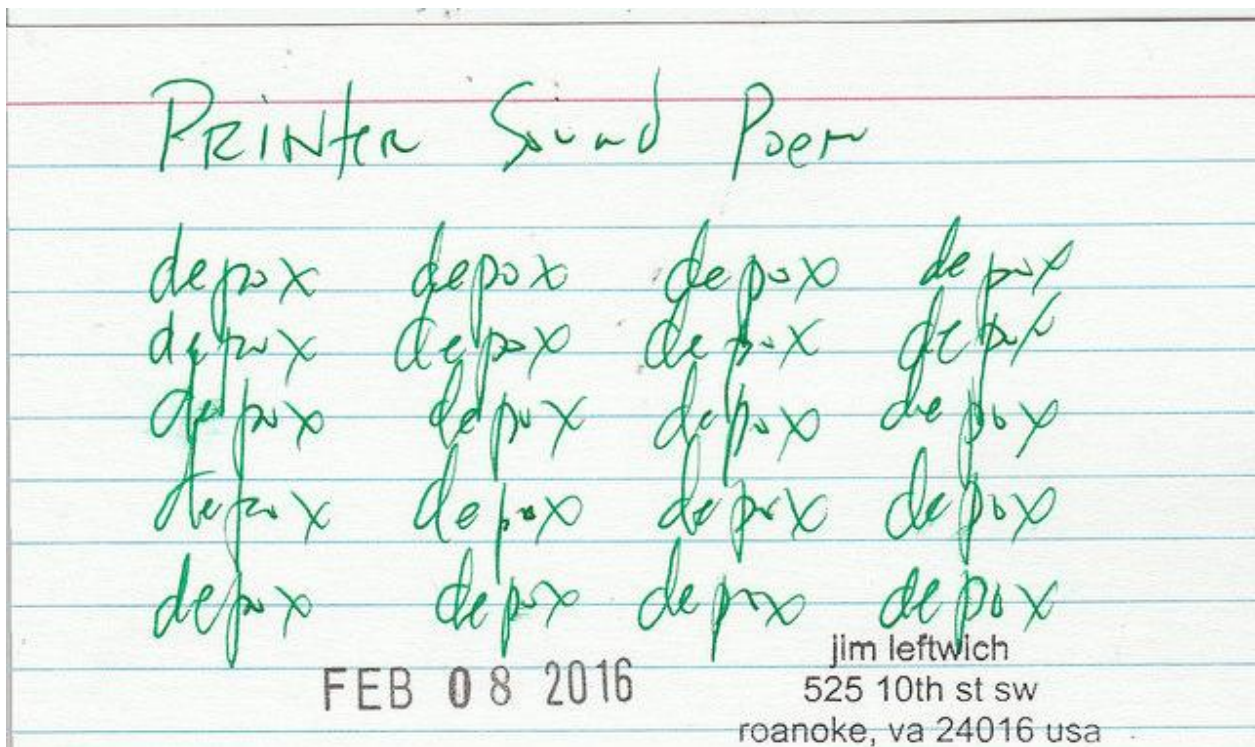 PRINter Sound Poem
depox depox depox depox
depox depox depox depox
depox depox depox depox
depox depox depox depox
depox depox depox depox
FEB 08 2016
jim leftwich
525 10th st sw
roanoke, va 24016 usa